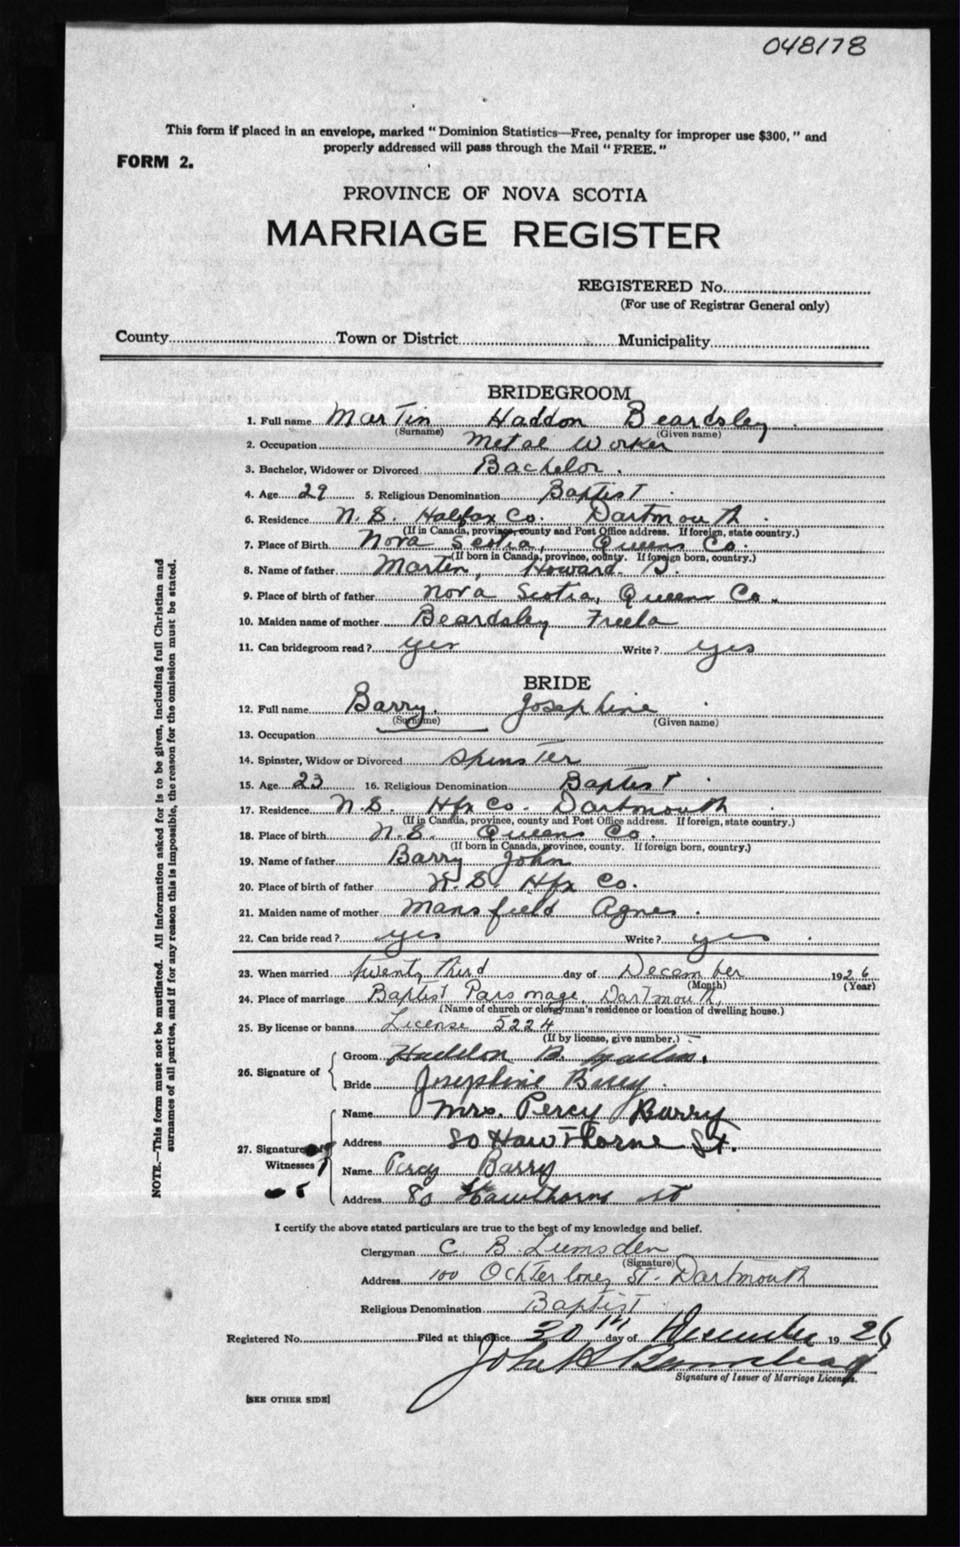 048178
This form if placed in an envelope, marked "Dominion Statistics—Free, penalty for improper use $300," and
properly addressed will pass through the Mail "FREE."
FORM 2.
PROVINCE OF NOVA SCOTIA
MARRIAGE REGISTER
REGISTERED No.
(For use of Registrar General only)
County Town or District Municipality
BRIDEGROOM
1. Full name Martin Haddon Beardsley
(Surname) (Given name)
2. Occupation Metal Worker
3. Bachelor, Widower or Divorced Bachelor.
4. Age 29 5. Religious Denomination Baptist
6. Residence N.S. Halifax Co. Dartmouth
(If in Canada, province, county and Post Office address. If foreign, state country.)
7. Place of Birth Nova Scotia, Queens Co.
(If born in Canada, province, county. If foreign born, country.)
8. Name of father Martin, Howard B.
9. Place of birth of father Nova Scotia, Queens Co.
10. Maiden name of mother Beardsley Freela
11. Can bridegroom read? yes Write? yes
BRIDE
12. Full name Barry Josephine
(Surname) (Given name)
13. Occupation
14. Spinster, Widow or Divorced Spinster
15. Age 23 16. Religious Denomination Baptist
17. Residence N.S. Hfx Co. Dartmouth
(If in Canada, province, county and Post Office address. If foreign, state country.)
18. Place of birth N.S. Queens Co.
(If born in Canada, province, county. If foreign born, country.)
19. Name of father Barry John
20. Place of birth of father N.S. Hfx Co.
21. Maiden name of mother Mansfield Agnes.
22. Can bride read? yes Write? yes
23. When married twenty third day of December 1926
(Month) (Year)
24. Place of marriage Baptist Parsonage, Dartmouth,
(Name of church or clergyman's residence or location of dwelling house.)
25. By license or banns License 5224
(If by license, give number.)
26. Signature of Groom Haddon B. Martin.
Bride Josephine Barry.
27. Signature of Witnesses Name Mrs. Percy Barry
Address 80 Hawthorne St.
Name Percy Barry
Address 80 Hawthorne st
I certify the above stated particulars are true to the best of my knowledge and belief.
Clergyman C. B. Lumsden
(Signature)
Address 100 Ochterloney St. Dartmouth
Religious Denomination Baptist
Registered No. Filed at this office 30th day of December 1926
John H
Signature of Issuer of Marriage Licenses.
[SEE OTHER SIDE]
NOTE.—This form must not be mutilated. All information asked for is to be given, including full Christian and
surnames of all parties, and if for any reason this is impossible, the reason for the omission must be stated.